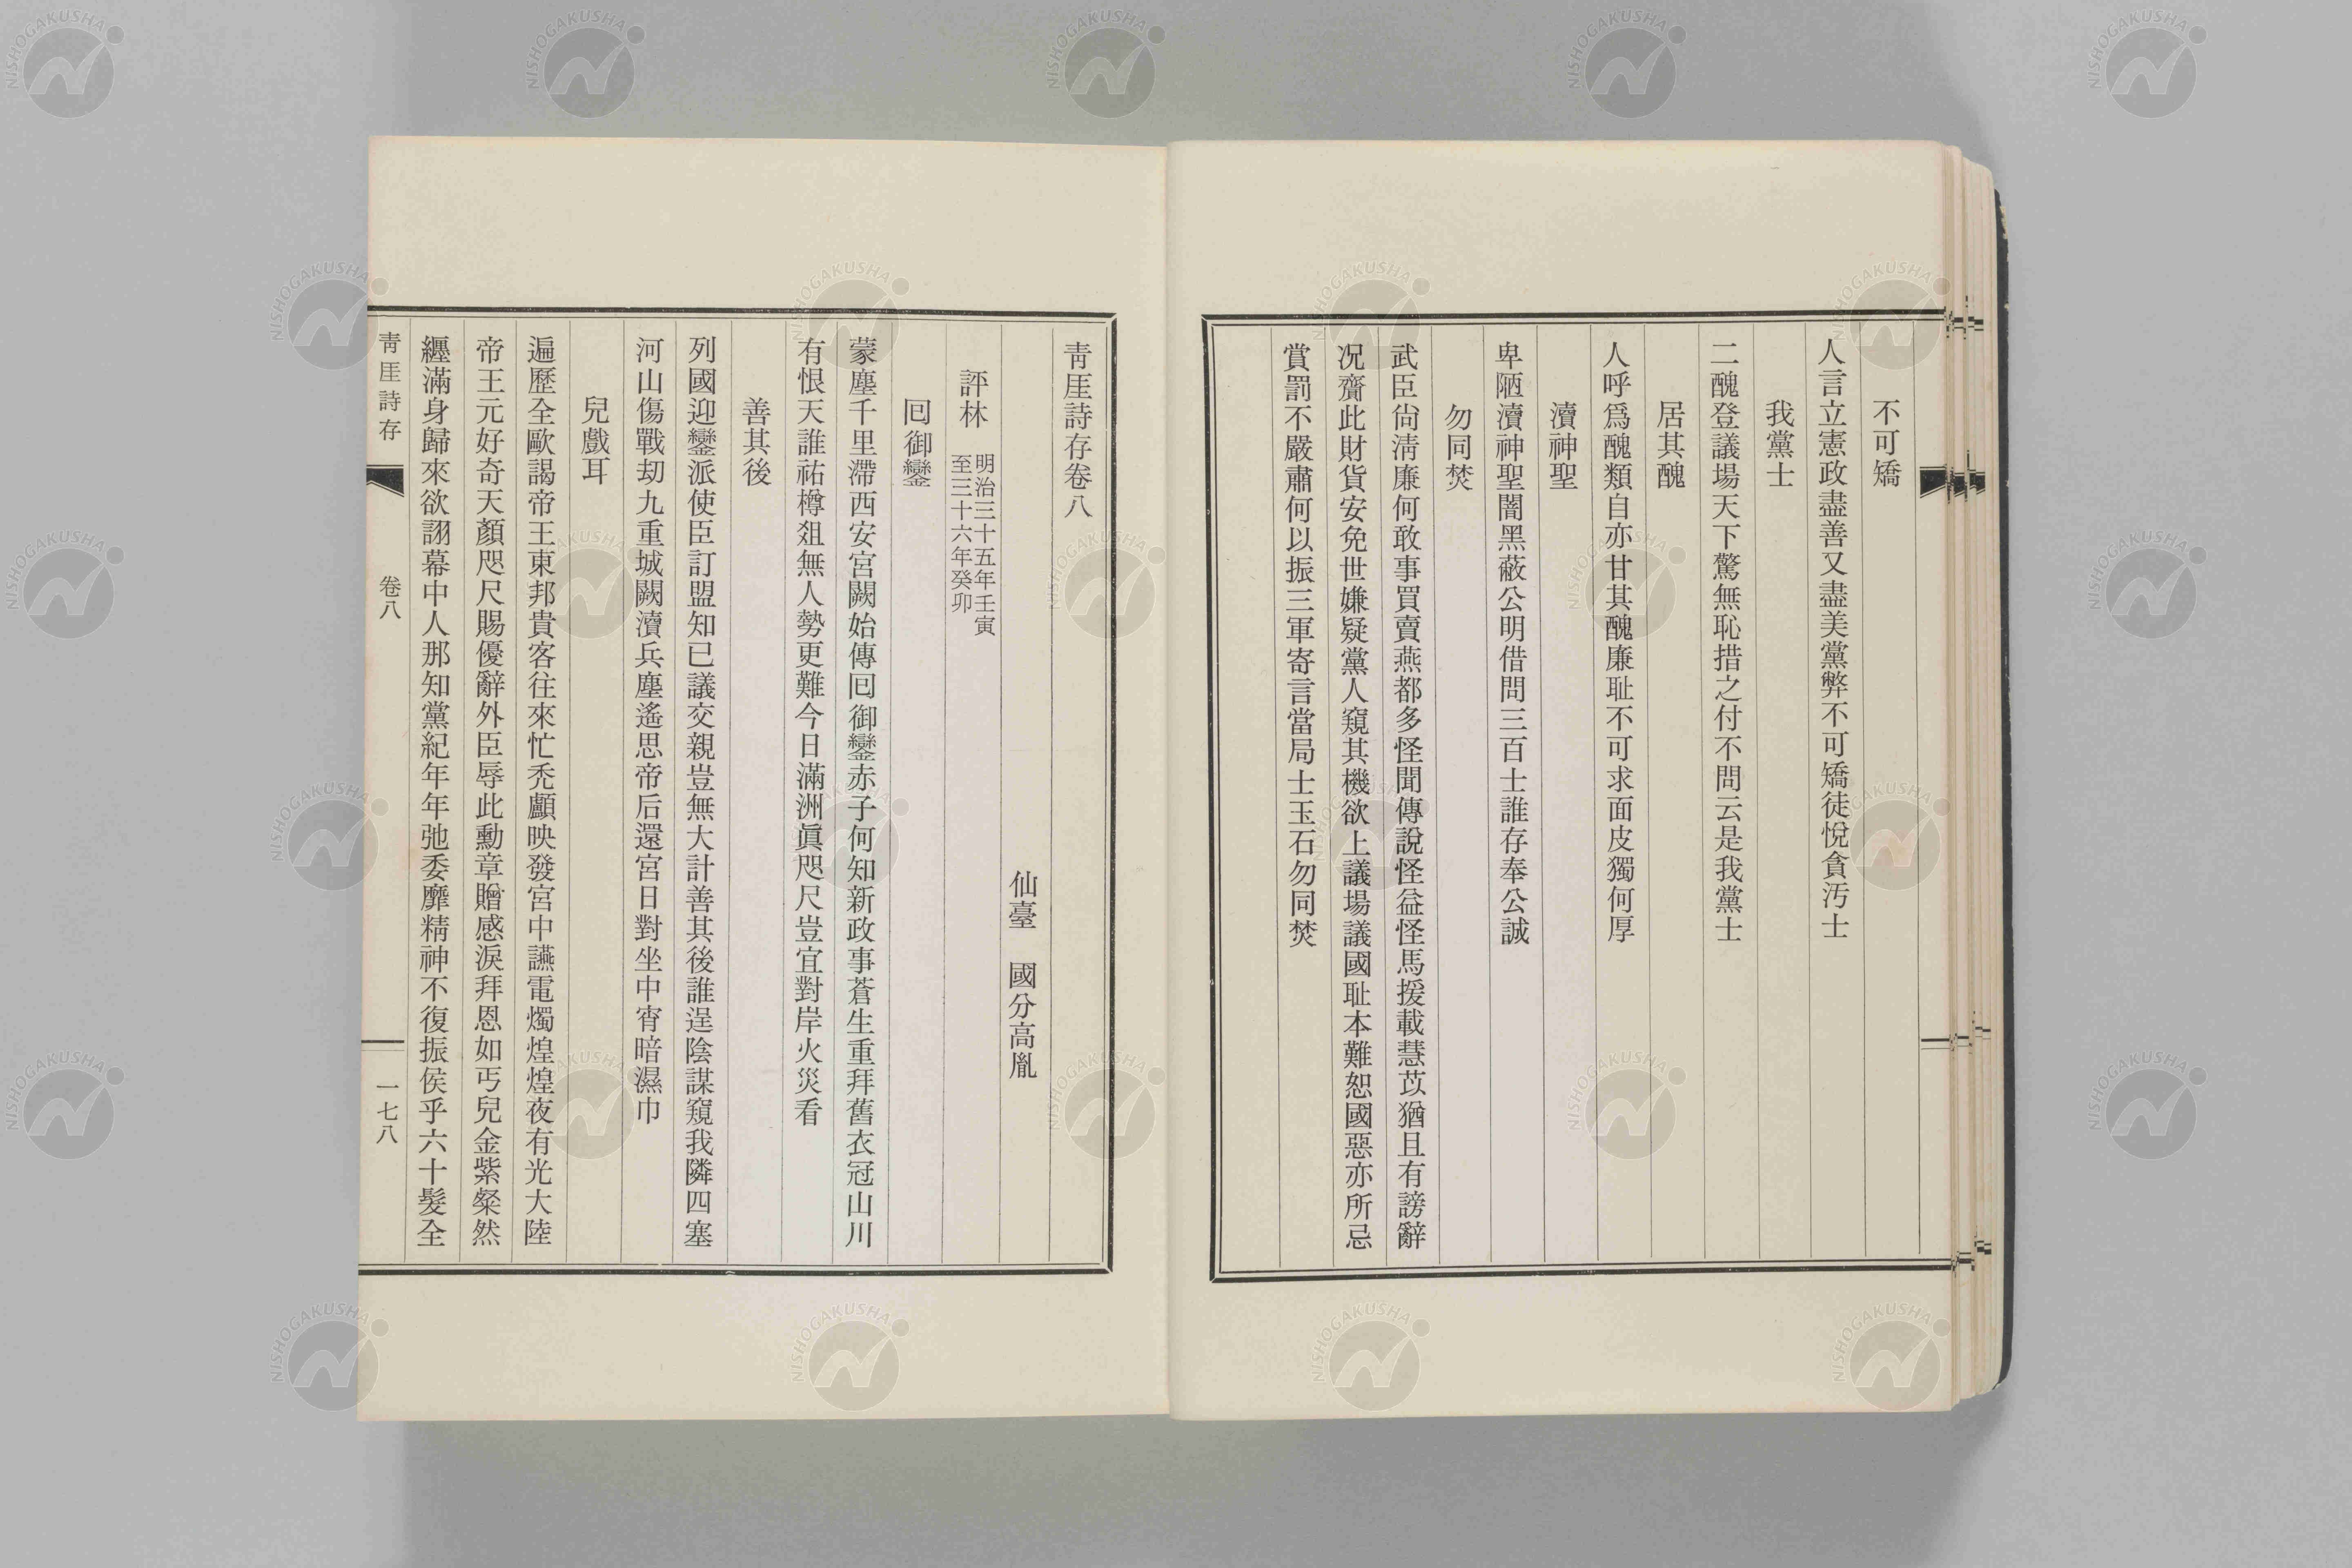 不可矯
人言立憲政盡善又盡美黨弊不可矯徒悅貪汚士
我黨士
二醜登議場天下驚無恥措之付不問云是我黨士
居其醜
人呼爲醜類自亦甘其醜廉耻不可求面皮獨何厚
瀆神聖
卑陋瀆神聖闇黑蔽公明借問三百士誰存奉公誠
勿同焚
武臣尙淸廉何敢事買賣燕都多怪聞傳說怪益怪馬援載慧苡猶且有謗辭
况齎此財貨安免世嫌疑黨人窺其機欲上議場議國耻本難恕國惡亦所忌
賞罰不嚴肅何以振三軍寄言當局士玉石勿同焚
靑厓詩存卷八
仙臺　國分高胤
評林 明治三十五年壬寅
至三十六年癸卯
回御鑾
蒙塵千里滯西安宮闕始傳回御鑾赤子何知新政事蒼生重拜舊衣冠山川
有恨天誰祐樽俎無人勢更難今日滿洲眞咫尺豈宜對岸火災看
善其後
列國迎鑾派使臣訂盟知已議交親豈無大計善其後誰逞陰謀窺我隣四塞
河山傷戰刧九重城闕瀆兵塵遙思帝后還宮日對坐中宵暗濕巾
兒戲耳
遍歷全歐謁帝王東邦貴客往來忙禿顱映發宮中讌電燭煌煌夜有光大陸
帝王元好奇天顏咫尺賜優辭外臣辱此勳章贈感淚拜恩如丐兒金紫粲然
纒滿身歸來欲詡幕中人那知黨紀年年弛委靡精神不復振侯乎六十髮全
靑厓詩存　卷八　一七八
NISHOGAKUSHA